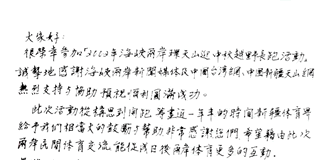 大家好:
很榮幸參加2002年海峽兩岸環天山逛中秋越野長跑活動,
誠摯地感謝海峽兩岸新聞媒体及中国台湾網、中国新疆天山網
熱烈支持与協助預祝順利圓滿成功。
此次活動從構思到開跑等畫近一年半的時間新疆体育界
給予我们相當大的鼓勵与幫助非常感謝您們希望藉由此次
兩岸民間体育交流能促成日後兩岸体育更多的互動。